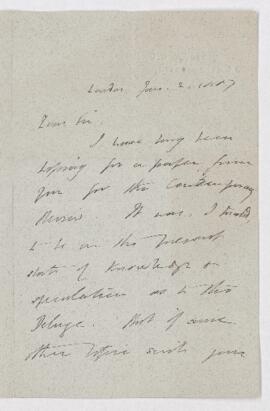 London Jan. 2. 1887
Dear Sir,
I have long been
hoping for a paper from
you for the Contemporary
Review. It was, I
to be on the present
state of knowledge or
speculation as to the
Deluge. But if some
other topic suits you